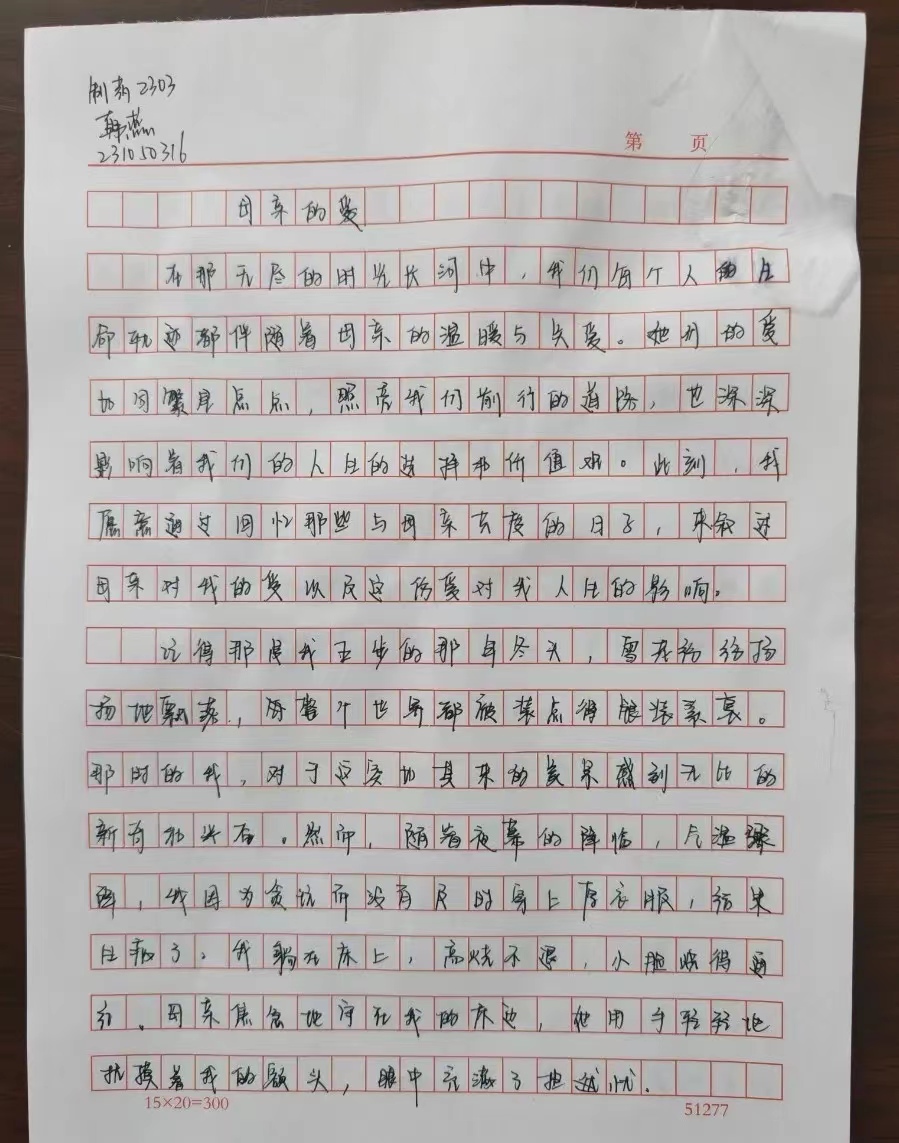 制药2303
韩燕
231050316
第 页
母亲的爱
在那无尽的时光长河中，我们每个人的生
命轨迹都伴随着母亲的温暖与关爱。她们的爱
如同繁星点点，照亮我们前行的道路，也深深
影响着我们的人生的选择和价值观。此刻，我
愿意通过回忆那些与母亲共度的日子，来叙述
母亲对我的爱以及这份爱对我人生的影响。
记得那是我五岁的那年冬天，雪花纷纷扬
扬地飘落，将整个世界都装点得银装素裹。
那时的我，对于这突如其来的美景感到无比的
新奇和兴奋。然而，随着夜幕的降临，气温骤
降，我因为贪玩而没有及时穿上厚衣服，结果
生病了。我躺在床上，高烧不退，小脸烧得通
红。母亲焦急地守在我的床边，她用手轻轻地
抚摸着我的额头，眼中充满了担忧。
15×20=300
51277